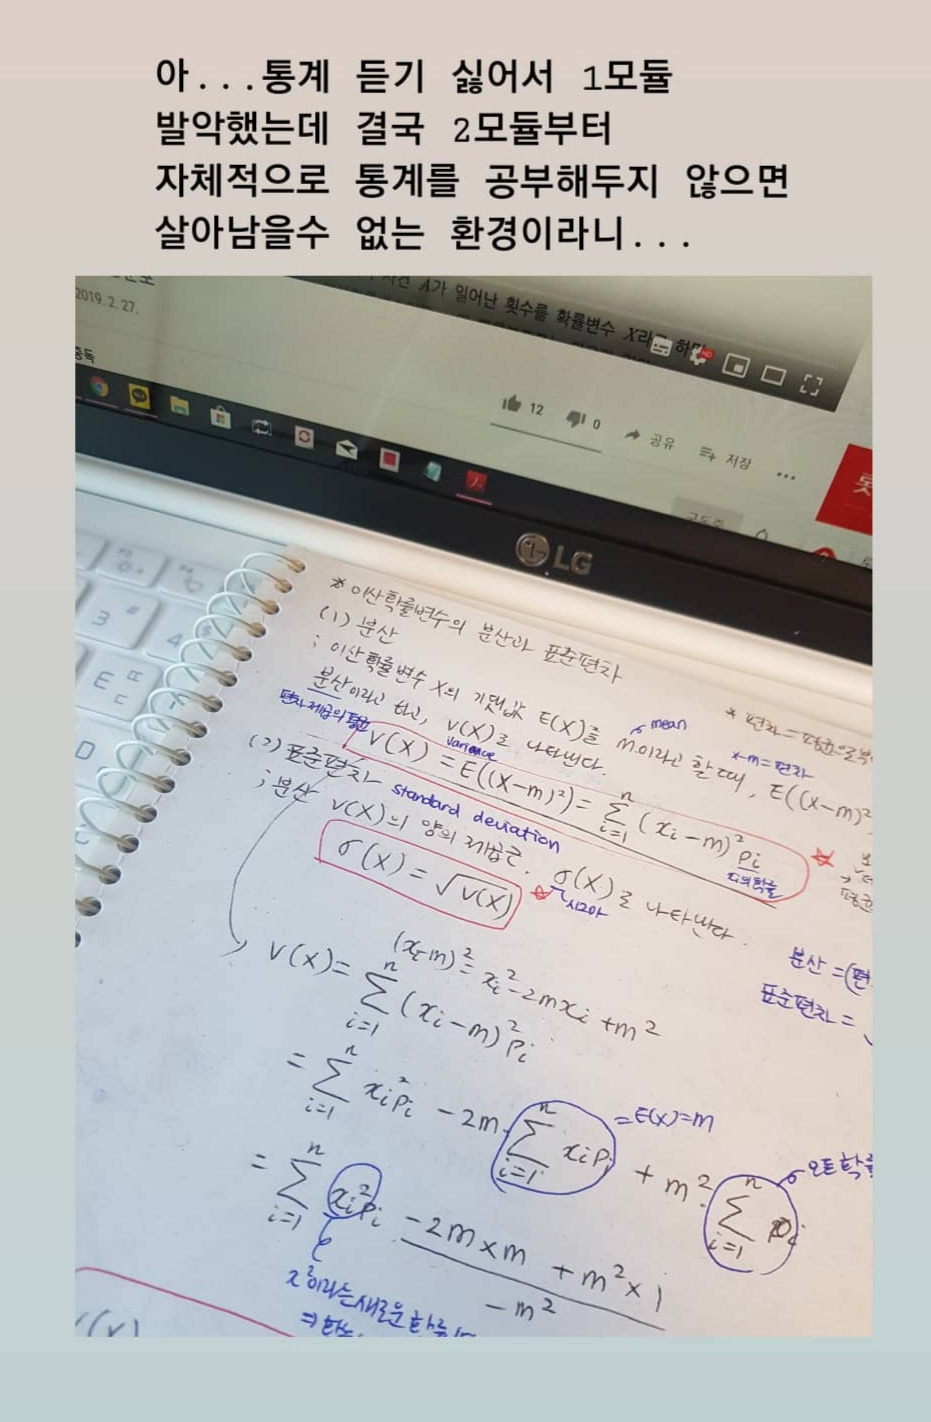 아...통계 듣기 싫어서 1모듈
발악했는데 결국 2모듈부터
자체적으로 통계를 공부해두지 않으면
살아남을수 없는 환경이라니...
2019.2.27.
A가 일어난 횟수를 확률변수 X라고 하면
HD
12
0
공유
저장
LG
3 #
4
E ㄸ ㄷ
D
* 이산확률변수의 분산과 표준편차
(1) 분산
; 이산확률변수 X의 기댓값 E(X)를 m이라고 할 때, E((X-m)²
mean
* 편차 = 평균으로부
x-m = 편차
분산이라고 하고, V(X)로 나타낸다.
편차제곱의 평균
variance
V(X) = E((X-m)²) = Σ(xᵢ-m)²pᵢ
n
i=1
xᵢ의 확률
(2) 표준편차 standard deviation
; 분산 V(X)의 양의 제곱근. σ(X)로 나타낸다.
시그마
σ(X) = √V(X)
분산 = (편
표준편차 =
(xᵢ-m)² = xᵢ²-2mxᵢ+m²
V(X) = Σ(xᵢ-m)²pᵢ
n
i=1
= Σxᵢ²pᵢ - 2m·Σxᵢpᵢ + m²·Σpᵢ
n n n
i=1 i=1 i=1
= E(X) = m
모든 확률
= Σxᵢ²pᵢ -2m×m + m²×1
n
i=1
-m²
x²이라는 새로운 확률